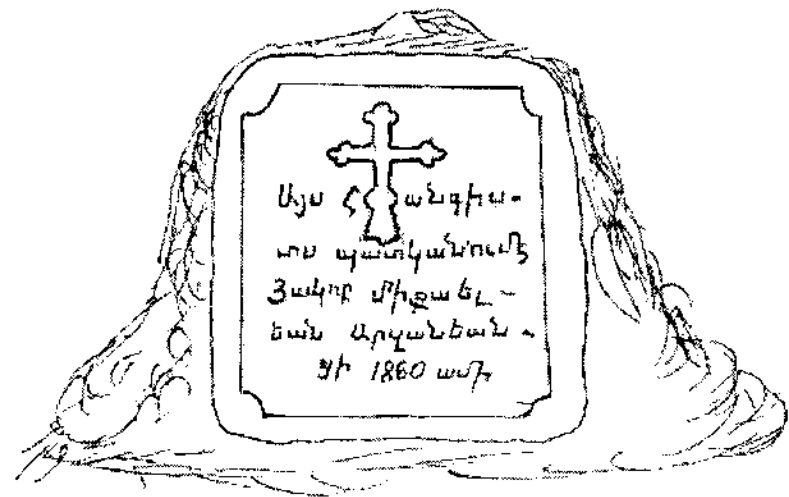 Այս հանգիս-
տս պատկանումէ
Յակոբ Միքայել-
եան Արղանեան-
ցի 1860 ամի